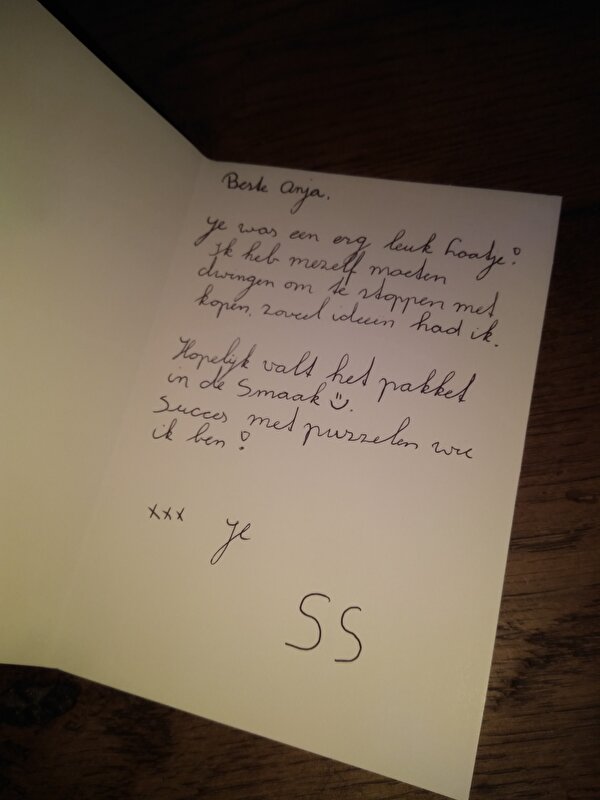 Beste Anja,
Je was een erg leuk lootje!
Ik heb mezelf moeten
dwingen om te stoppen met
kopen, zoveel ideeen had ik.
Hopelijk valt het pakket
in de Smaak☺.
Succes met puzzelen wie
ik ben!
xxx je
SS